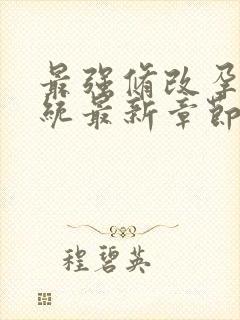 最强修改孕
统最新章节
程碧英